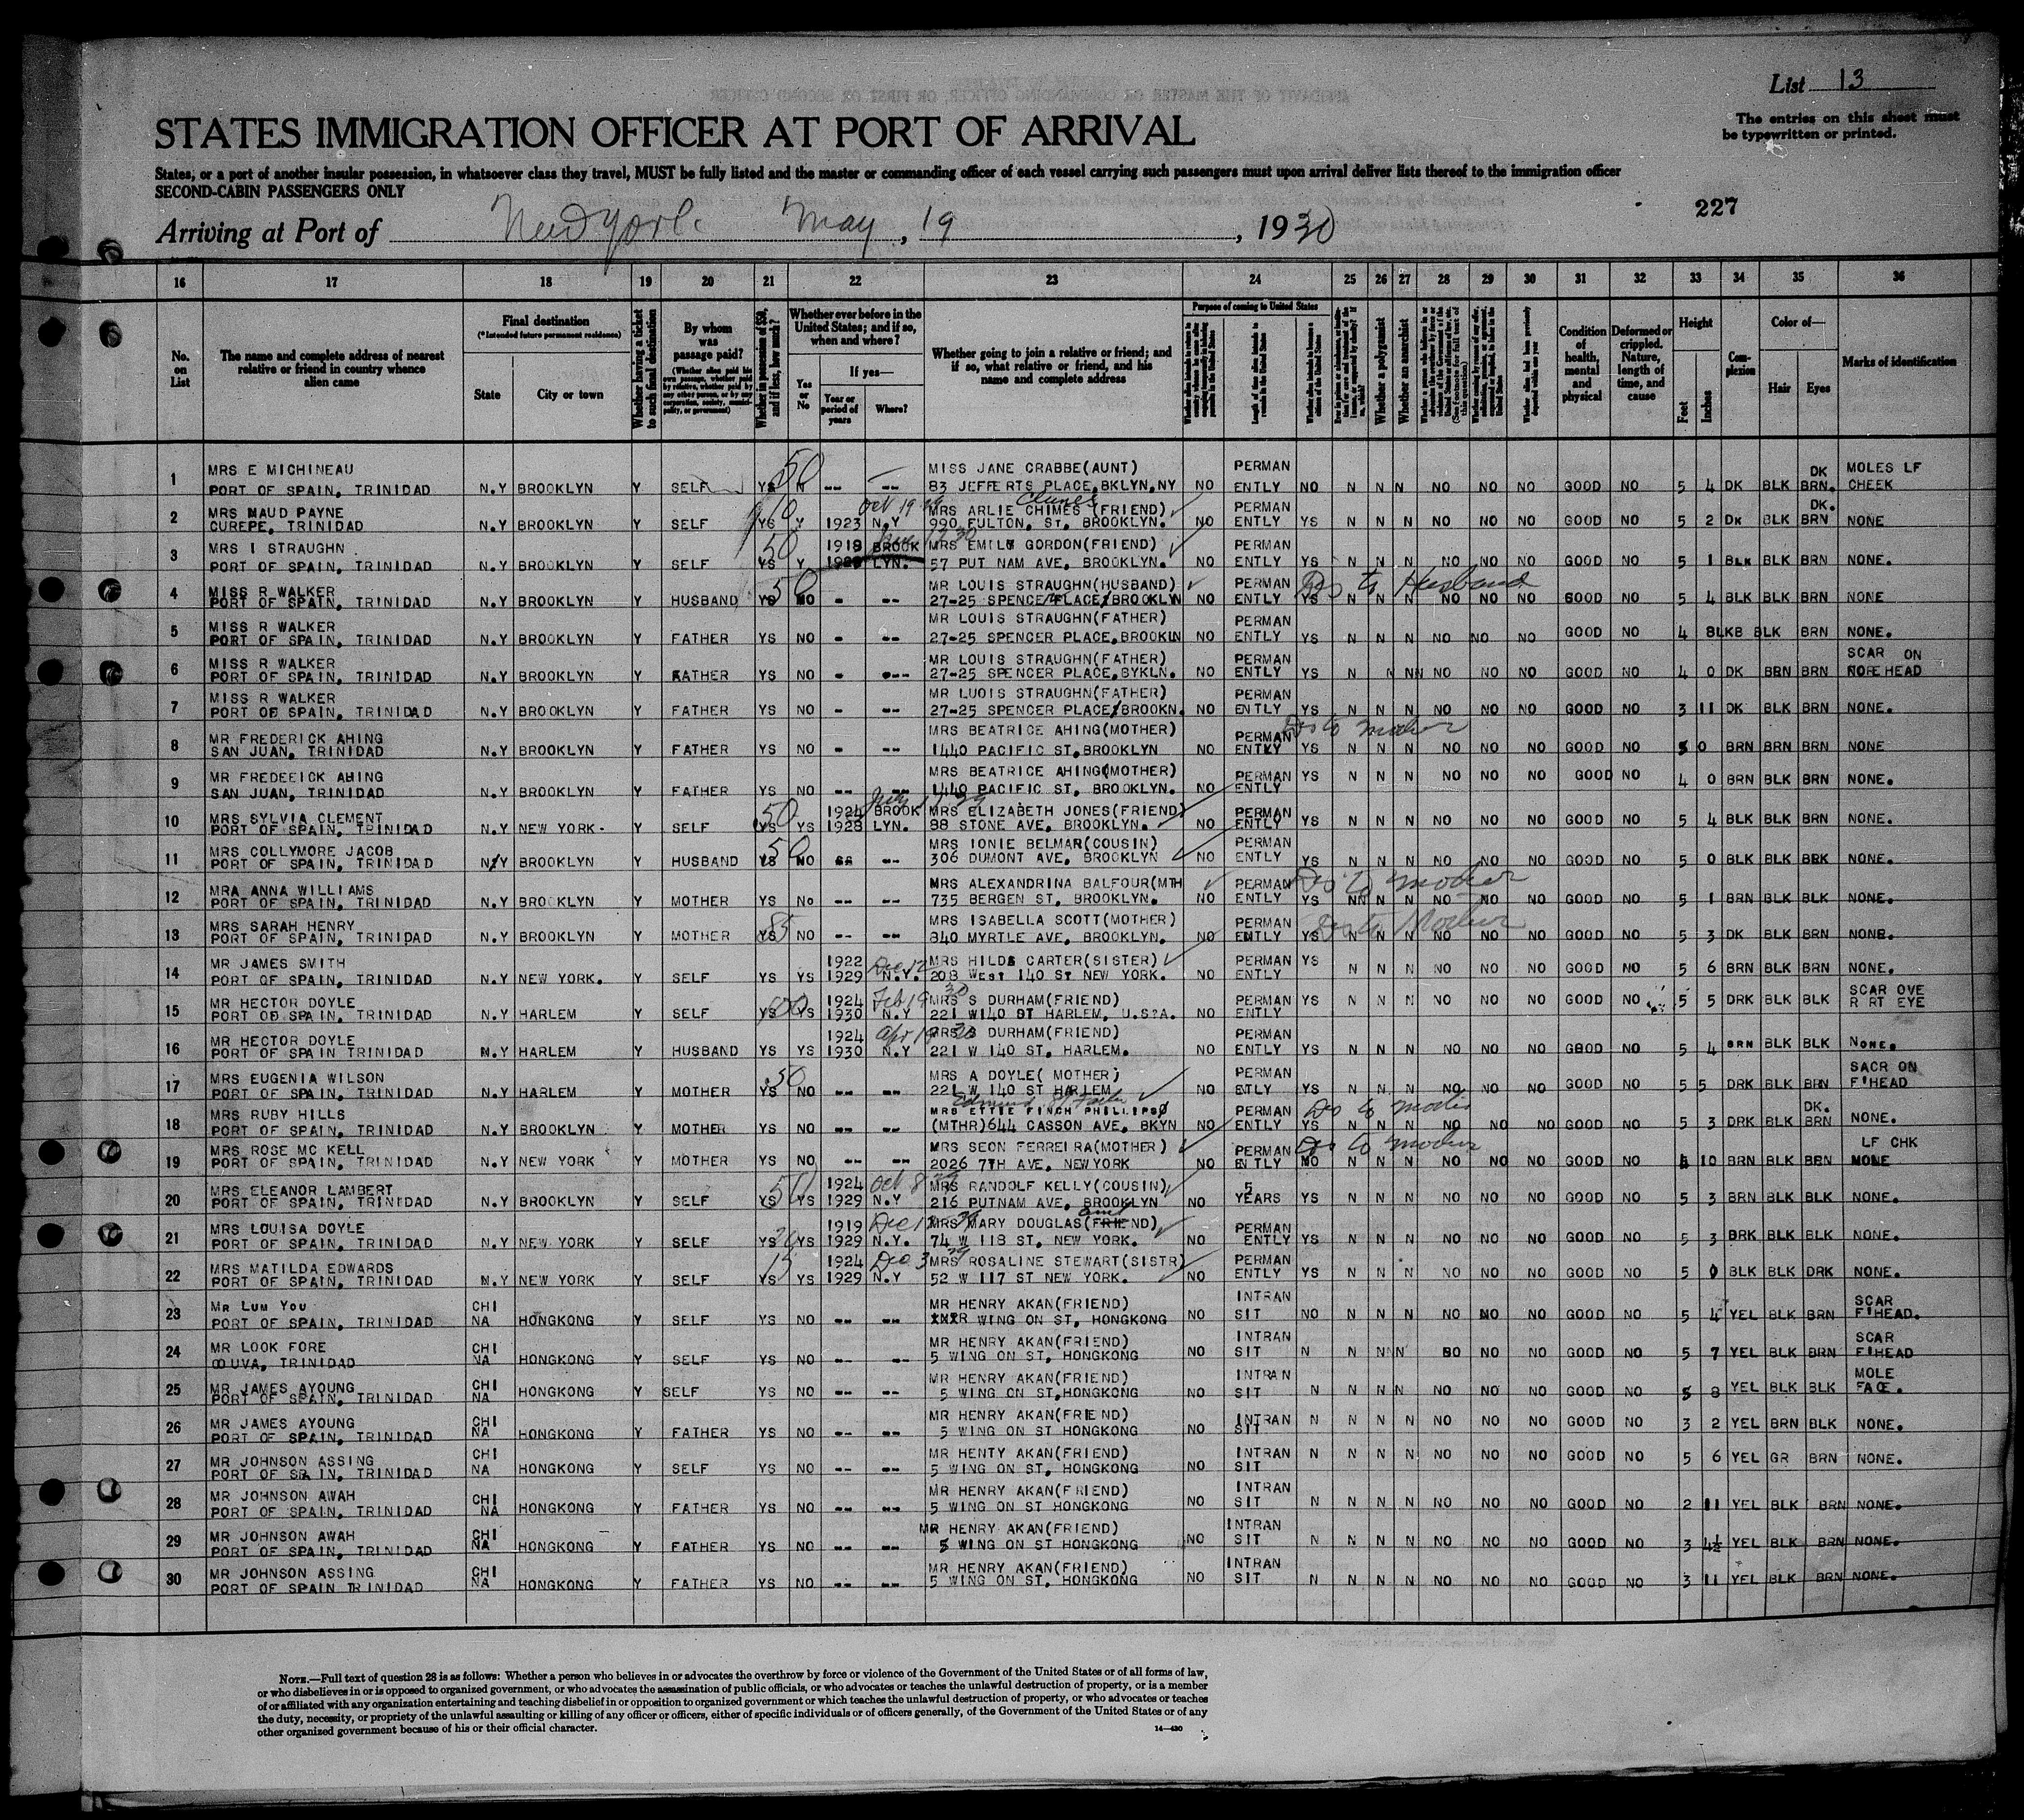 List 13
The entries on this sheet must
be typewritten or printed.
STATES IMMIGRATION OFFICER AT PORT OF ARRIVAL
States, or a port of another insular possession, in whatsoever class they travel, MUST be fully listed and the master or commanding officer of each vessel carrying such passengers must upon arrival deliver lists thereof to the immigration officer
SECOND-CABIN PASSENGERS ONLY
227
Arriving at Port of New York May, 19, 1930
16 17 18 19 20 21 22 23 24 25 26 27 28 29 30 31 32 33 34 35 36
No. on List
The name and complete address of nearest relative or friend in country whence alien came
Final destination
(*Intended future permanent residence)
State City or town
Whether having a ticket to such final destination
By whom was passage paid?
(Whether alien paid his own passage, whether paid by relative, whether paid by any other person, or by any corporation, society, municipality, or government)
Whether in possession of $50, and if less, how much?
Whether ever before in the United States; and if so, when and where?
Yes or No
If yes—
Year or period of years Where?
Whether going to join a relative or friend; and if so, what relative or friend, and his name and complete address
Purpose of coming to United States
Length of time alien intends to remain in the United States
Whether a polygamist
Whether an anarchist
Condition of health, mental and physical
Deformed or crippled. Nature, length of time, and cause
Height
Feet Inches
Complexion
Color of—
Hair Eyes
Marks of identification
1 MRS E MICHINEAU MISS JANE CRABBE(AUNT) PERMAN DK MOLES LF
PORT OF SPAIN, TRINIDAD N.Y BROOKLYN Y SELF YS 50 N -- -- 83 JEFFERTS PLACE,BKLYN,NY NO ENTLY NO N N N NO NO NO GOOD NO 5 4 DK BLK BRN. CHEEK
2 MRS MAUD PAYNE Oct 19 29 MRS ARLIE CHIMES Clunes (FRIEND) PERMAN DK.
CUREPE, TRINIDAD N.Y BROOKLYN Y SELF YS 10 Y 1923 N.Y 990 FULTON, ST, BROOKLYN. NO ENTLY YS N N N NO NO NO GOOD NO 5 2 DK BLK BRN NONE
3 MRS I STRAUGHN 1918 BROOK MRS EMILY GORDON(FRIEND) PERMAN
PORT OF SPAIN, TRINIDAD N.Y BROOKLYN Y SELF YS 50 Y LYN. 57 PUT NAM AVE, BROOKLYN. NO ENTLY YS N N N NO NO NO GOOD NO 5 1 BLK BLK BRN NONE.
4 MISS R WALKER MR LOUIS STRAUGHN(HUSBAND) PERMAN Des to Husband
PORT OF SPAIN, TRINIDAD N.Y BROOKLYN Y HUSBAND YS 50 NO - -- 27-25 SPENCER PLACE, BROOKLYN NO ENTLY YS N N N NO NO NO GOOD NO 5 4 BLK BLK BRN NONE
5 MISS R WALKER MR LOUIS STRAUGHN(FATHER) PERMAN
PORT OF SPAIN, TRINIDAD N.Y BROOKLYN Y FATHER YS NO - -- 27-25 SPENCER PLACE,BROOKLN NO ENTLY YS N N N NO NO NO GOOD NO 4 8LKB BLK BRN NONE.
6 MISS R WALKER MR LOUIS STRAUGHN(FATHER) PERMAN SCAR ON
PORT OF SPAIN, TRINIDAD N.Y BROOKLYN Y FATHER YS NO - --- 27-25 SPENCER PLACE,BYKLN. NO ENTLY YS N N NN NO NO NO GOOD NO 4 0 DK BRN BRN FOREHEAD
7 MISS R WALKER MR LUOIS STRAUGHN(FATHER) PERMAN
PORT OF SPAIN, TRINIDAD N.Y BROOKLYN Y FATHER YS NO - -- 27-25 SPENCER PLACE,BROOKN. NO ENTLY YS N N N NO NO NO GOOD NO 3 11 DK BLK BRN NONE.
8 MR FREDERICK AHING MRS BEATRICE AHING(MOTHER) PERMAN Des to mother
SAN JUAN, TRINIDAD N.Y BROOKLYN Y FATHER YS NO - -- 1440 PACIFIC ST,BROOKLYN NO ENTLY YS N N N NO NO NO GOOD NO 5 0 BRN BRN BRN NONE
9 MR FREDEEICK AHING MRS BEATRICE AHING(MOTHER) PERMAN YS N N N NO NO NO GOOD NO 4 0 BRN BLK BRN NONE.
SAN JUAN, TRINIDAD N.Y BROOKLYN Y FATHER YS NO -- -- 1440 PACIFIC ST, BROOKLYN. NO ENTLY
10 MRS SYLVIA CLEMENT 1924 BROOK MRS ELIZABETH JONES(FRIEND) PERMAN
PORT OF SPAIN, TRINIDAD N.Y NEW YORK- Y SELF YS 50 YS 1928 LYN. 88 STONE AVE, BROOKLYN. NO ENTLY YS N N N NO NO NO GOOD NO 5 4 BLK BLK BRN NONE.
11 MRS COLLYMORE JACOB MRS IONIE BELMAR(COUSIN) PERMAN
PORT OF SPAIN, TRINIDAD N.Y BROOKLYN Y HUSBAND YS 50 NO -- -- 306 DUMONT AVE, BROOKLYN NO ENTLY YS N N N NO NO NO GOOD NO 5 0 BLK BLK BRK NONE.
12 MRA ANNA WILLIAMS MRS ALEXANDRINA BALFOUR(MTH PERMAN Des to mother
PORT OF SPAIN, TRINIDAD N.Y BROOKLYN Y MOTHER YS No -- -- 735 BERGEN ST, BROOKLYN. NO ENTLY YS NN N NO NO NO GOOD NO 5 1 BRN BLK BLK NONE.
13 MRS SARAH HENRY MRS ISABELLA SCOTT(MOTHER) PERMAN Des to Mother
PORT OF SPAIN, TRINIDAD N.Y BROOKLYN Y MOTHER YS 85 NO -- -- 840 MYRTLE AVE, BROOKLYN. NO ENTLY YS N N N NO NO NO GOOD NO 5 3 DK BLK BRN NONE.
14 MR JAMES SMITH 1922 Dec 12 MRS HILDS CARTER(SISTER) PERMAN YS
PORT OF SPAIN, TRINIDAD N.Y NEW YORK. Y SELF YS YS 1929 N.Y. 208 WEST 140 ST NEW YORK. NO ENTLY N N N NO NO NO GOOD NO 5 6 BRN BLK BRN NONE.
15 MR HECTOR DOYLE 1924 Feb 19 30 MRS S DURHAM(FRIEND) PERMAN YS N N N NO NO NO GOOD NO 5 5 DRK BLK BLK SCAR OVE
PORT OF SPAIN, TRINIDAD N.Y HARLEM Y SELF YS YS 1930 N.Y 221 W140 ST HARLEM, U.S?A. NO ENTLY R RT EYE
16 MR HECTOR DOYLE 1924 Apr 19 30 MRS S DURHAM(FRIEND) PERMAN
PORT OF SPAIN TRINIDAD N.Y HARLEM Y HUSBAND YS YS 1930 N.Y 221 W 140 ST, HARLEM. NO ENTLY YS N N N NO NO NO GOOD NO 5 4 BRN BLK BLK NONE.
17 MRS EUGENIA WILSON MRS A DOYLE( MOTHER) PERMAN SACR ON
PORT OF SPAIN, TRINIDAD N.Y HARLEM Y MOTHER YS 50 NO -- -- 221 W 140 ST HARLEM NO ENTLY YS N N N NO NO NO GOOD NO 5 5 DRK BLK BRN F'HEAD
18 MRS RUBY HILLS MRS ETTIE FINCH PHILLIPS PERMAN Des to mother DK.
PORT OF SPAIN, TRINIDAD N.Y BROOKLYN Y MOTHER YS NO -- -- (MTHR)644 CASSON AVE, BKYN NO ENTLY YS N N N NO NO NO GOOD NO 5 3 DRK BLK BRN NONE.
19 MRS ROSE MC KELL MRS SEON FERREIRA(MOTHER) PERMAN Des to mother LF CHK
PORT OF SPAIN, TRINIDAD N.Y NEW YORK Y MOTHER YS NO -- -- 2026 7TH AVE, NEWYORK NO ENTLY NO N N N NO NO NO GOOD NO 4 10 BRN BLK BRN MOLE
20 MRS ELEANOR LAMBERT 1924 Oct 8 29 MRS RANDOLF KELLY(COUSIN) 5
PORT OF SPAIN, TRINIDAD N.Y BROOKLYN Y SELF YS 50 YS 1929 N.Y 216 PUTNAM AVE, BROOKLYN NO YEARS YS N N N NO NO NO GOOD NO 5 3 BRN BLK BLK NONE.
21 MRS LOUISA DOYLE 1919 MRS MARY DOUGLAS(FRIEND) aunt PERMAN
PORT OF SPAIN, TRINIDAD N.Y NEW YORK Y SELF YS YS 1929 N.Y. 74 W 118 ST, NEW YORK. NO ENTLY YS N N N NO NO NO GOOD NO 5 3 BRK BLK BLK NONE.
22 MRS MATILDA EDWARDS 1924 Dec 3 29 MRS ROSALINE STEWART(SISTR) PERMAN
PORT OF SPAIN, TRINIDAD N.Y NEW YORK Y SELF YS 15 YS 1929 N.Y 52 W 117 ST NEW YORK. NO ENTLY YS N N N NO NO NO GOOD NO 5 0 BLK BLK DRK NONE.
23 MR LUM YOU CHI MR HENRY AKAN(FRIEND) INTRAN SCAR
PORT OF SPAIN, TRINIDAD NA HONGKONG Y SELF YS NO -- -- WING ON ST, HONGKONG NO SIT NO N N N NO NO NO GOOD NO 5 4 YEL BLK BRN F'HEAD.
24 MR LOOK FORE CHI MR HENRY AKAN(FRIEND) INTRAN SCAR
COUVA, TRINIDAD NA HONGKONG Y SELF YS NO -- -- 5 WING ON ST, HONGKONG NO SIT N N N N NO NO NO GOOD NO 5 7 YEL BLK BRN F'HEAD
25 MR JAMES AYOUNG CHI MR HENRY AKAN(FRIEND) INTRAN MOLE
PORT OF SPAIN, TRINIDAD NA HONGKONG Y SELF YS NO -- -- 5 WING ON ST,HONGKONG NO SIT N N N N NO NO NO GOOD NO 5 8 YEL BLK BLK FACE.
26 MR JAMES AYOUNG CHI MR HENRY AKAN(FRIEND) INTRAN N N N N NO NO NO GOOD NO 3 2 YEL BRN BLK NONE.
PORT OF SPAIN, TRINIDAD NA HONGKONG Y FATHER YS NO -- -- 5 WING ON ST HONGKONG NO SIT
27 MR JOHNSON ASSING CHI MR HENTY AKAN(FRIEND) INTRAN N N N N NO NO NO GOOD NO 5 6 YEL GR BRN NONE.
PORT OF SPAIN, TRINIDAD NA HONGKONG Y SELF YS NO -- -- 5 WING ON ST, HONGKONG NO SIT
28 MR JOHNSON AWAH CHI MR HENRY AKAN(FRIEND) INTRAN
PORT OF SPAIN, TRINIDAD NA HONGKONG Y FATHER YS NO -- -- 5 WING ON ST HONGKONG NO SIT N N N N NO NO NO GOOD NO 2 11 YEL BLK BRN NONE.
29 MR JOHNSON AWAH CHI MR HENRY AKAN(FRIEND) INTRAN
PORT OF SPAIN, TRINIDAD NA HONGKONG Y FATHER YS NO -- -- 5 WING ON ST HONGKONG NO SIT N N N N NO NO NO GOOD NO 3 4½ YEL BLK BRN NONE.
30 MR JOHNSON ASSING CHI MR HENRY AKAN(FRIEND) INTRAN
PORT OF SPAIN TRINIDAD NA HONGKONG Y FATHER YS NO -- -- 5 WING ON ST, HONGKONG NO SIT N N N N NO NO NO GOOD NO 3 11 YEL BLK BRN NONE.
NOTE.—Full text of question 28 is as follows: Whether a person who believes in or advocates the overthrow by force or violence of the Government of the United States or of all forms of law,
or who disbelieves in or is opposed to organized government, or who advocates the assassination of public officials, or who advocates or teaches the unlawful destruction of property, or is a member
of or affiliated with any organization entertaining and teaching disbelief in or opposition to organized government or which teaches the unlawful destruction of property, or who advocates or teaches
the duty, necessity, or propriety of the unlawful assaulting or killing of any officer or officers, either of specific individuals or of officers generally, of the Government of the United States or of any
other organized government because of his or their official character.
14—430